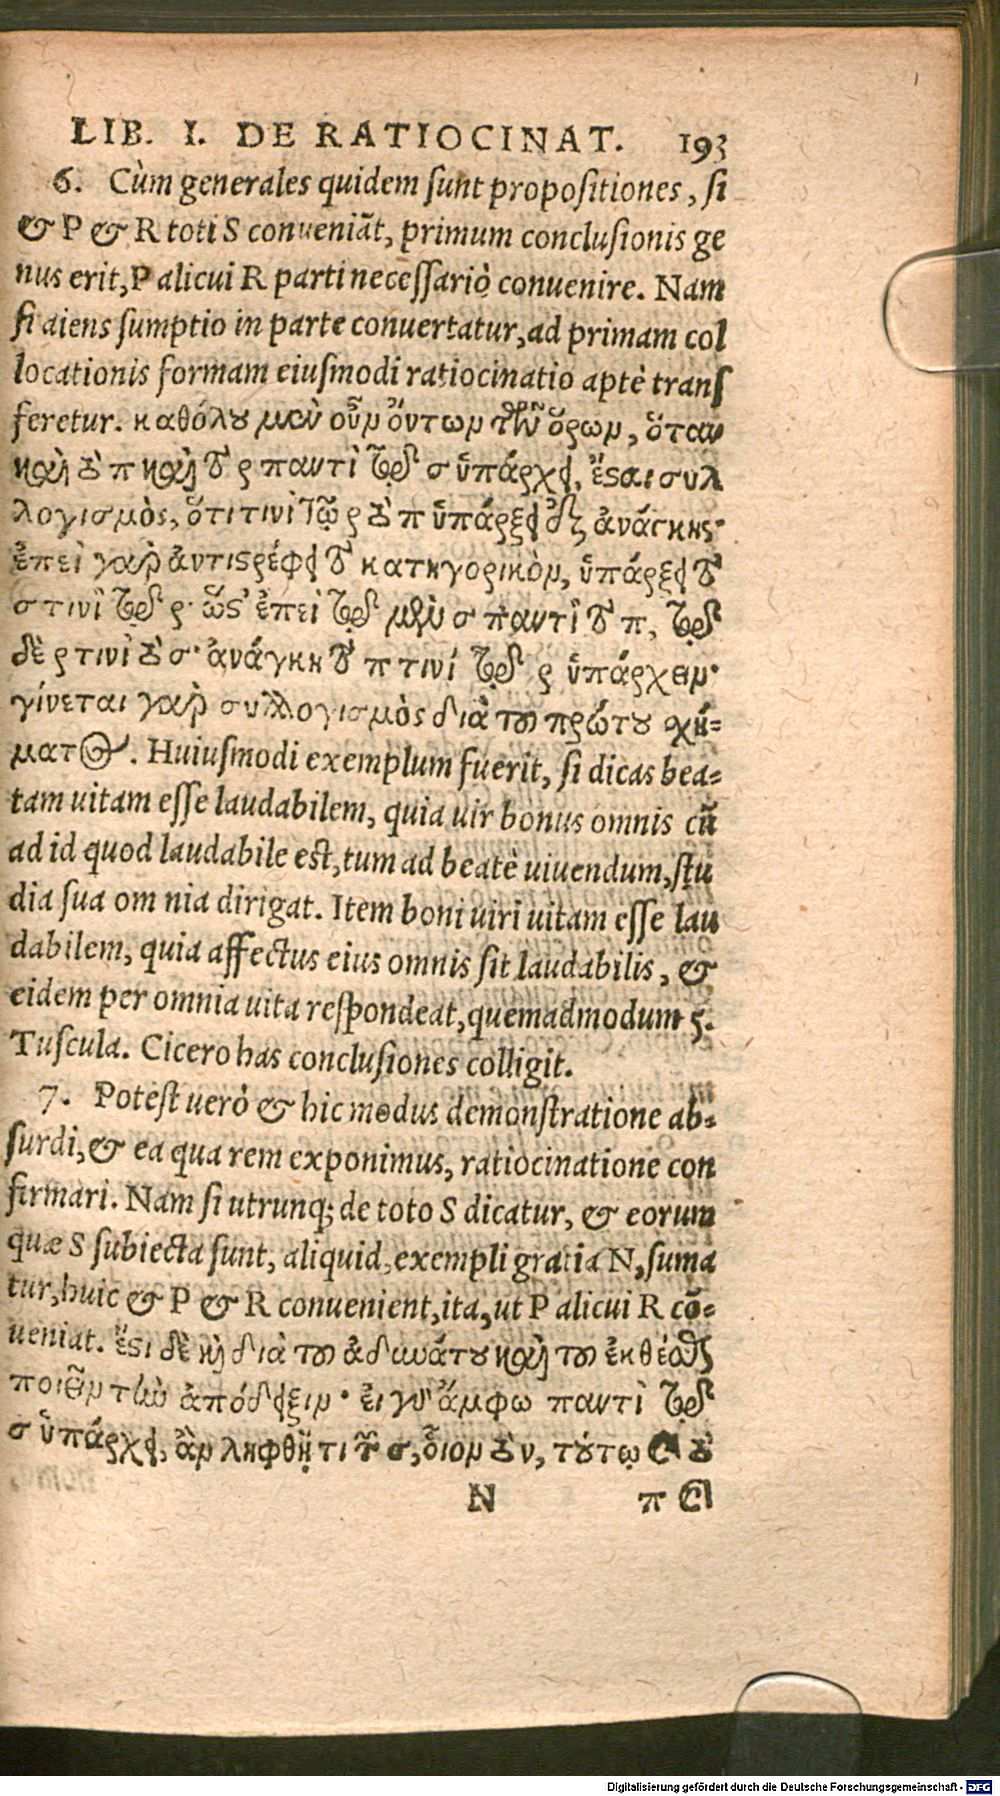 LIB. I. DE RATIOCINAT. 193
6. Cùm generales quidem sunt propositiones, si
& P & R toti S conueniāt, primum conclusionis ge
nus erit, P alicui R parti necessariò conuenire. Nam
si aiens sumptio in parte conuertatur, ad primam col
locationis formam eiusmodi ratiocinatio aptè trans
feretur. καθόλου μὲν οὖν ὄντων τῶν ὅρων, ὅταν
καὶ τὸ π καὶ τὸ ρ παντὶ τῷ σ ὑπάρχῃ, ἔσται συλ
λογισμὸς, ὅτι τινὶ τῷ ρ τὸ π ὑπάρξει ἐξ ἀνάγκης·
ἐπεὶ γὰρ ἀντιστρέφει τὸ κατηγορικὸν, ὑπάρξει τὸ
σ τινὶ τῷ ρ· ὥστ' ἐπεὶ τῷ μὲν σ παντὶ τὸ π, τῷ
δὲ ρ τινὶ τὸ σ· ἀνάγκη τὸ π τινὶ τῷ ρ ὑπάρχειν·
γίνεται γὰρ συλλογισμὸς διὰ τοῦ πρώτου σχή=
ματος. Huiusmodi exemplum fuerit, si dicas bea=
tam uitam esse laudabilem, quia uir bonus omnis cū
ad id quod laudabile est, tum ad beatè uiuendum, stu
dia sua om nia dirigat. Item boni uiri uitam esse lau
dabilem, quia affectus eius omnis sit laudabilis, &
eidem per omnia uita respondeat, quemadmodum 5.
Tuscula. Cicero has conclusiones colligit.
7. Potest uerò & hic modus demonstratione ab=
surdi, & ea qua rem exponimus, ratiocinatione con
firmari. Nam si utrunq; de toto S dicatur, & eorum
quæ S subiecta sunt, aliquid, exempli gratia N, suma
tur, huic & P & R conuenient, ita, ut P alicui R cō=
ueniat. ἔστι δὲ καὶ διὰ τοῦ ἀδυνάτου καὶ τοῦ ἐκθέσθαι
ποιεῖν τὴν ἀπόδειξιν· εἰ γὰρ ἄμφω παντὶ τῷ
σ ὑπάρχει, ἂν ληφθῇ τι τῶν σ, οἷον τὸ ν, τούτῳ καὶ τὸ
N π καὶ